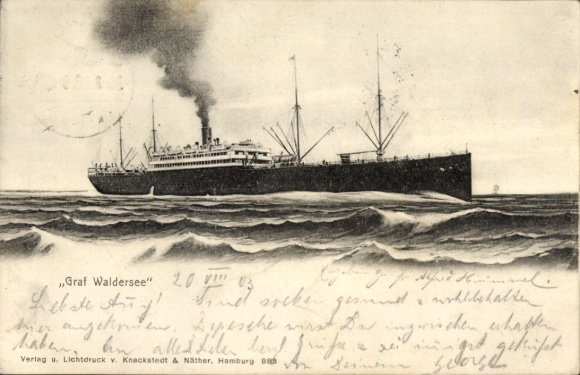 „Graf Waldersee"
20 VIII 03
Liebste Änny! Sind soeben gesund & wohlbehalten
hier angekommen. Depesche wirst Du inzwischen erhalten
haben. An alle herzl. Grüße & sei innigst geküsst
von Deinem George
Verlag u. Lichtdruck v. Knackstedt & Näther, Hamburg 983